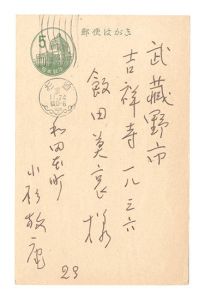 郵便はがき
5
武蔵野市
吉祥寺一八三六
飯田美哀様
和田本町
小杉放庵
23